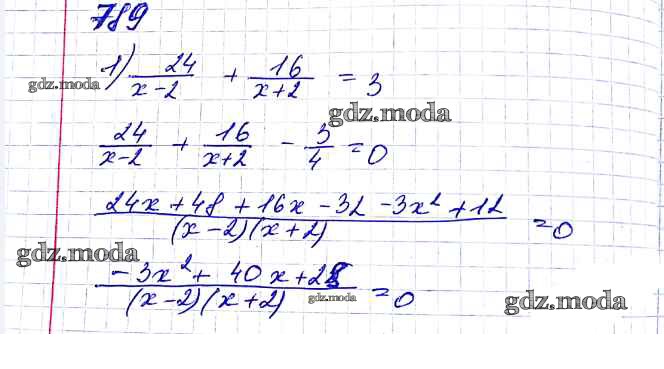 789
1) 24/(x-2) + 16/(x+2) = 3
gdz.moda
gdz.moda
24/(x-2) + 16/(x+2) - 3/4 = 0
(24x + 48 + 16x - 32 - 3x² + 12)/((x-2)(x+2)) = 0
gdz.moda
(-3x² + 40x + 28)/((x-2)(x+2)) = 0
gdz.moda
gdz.moda